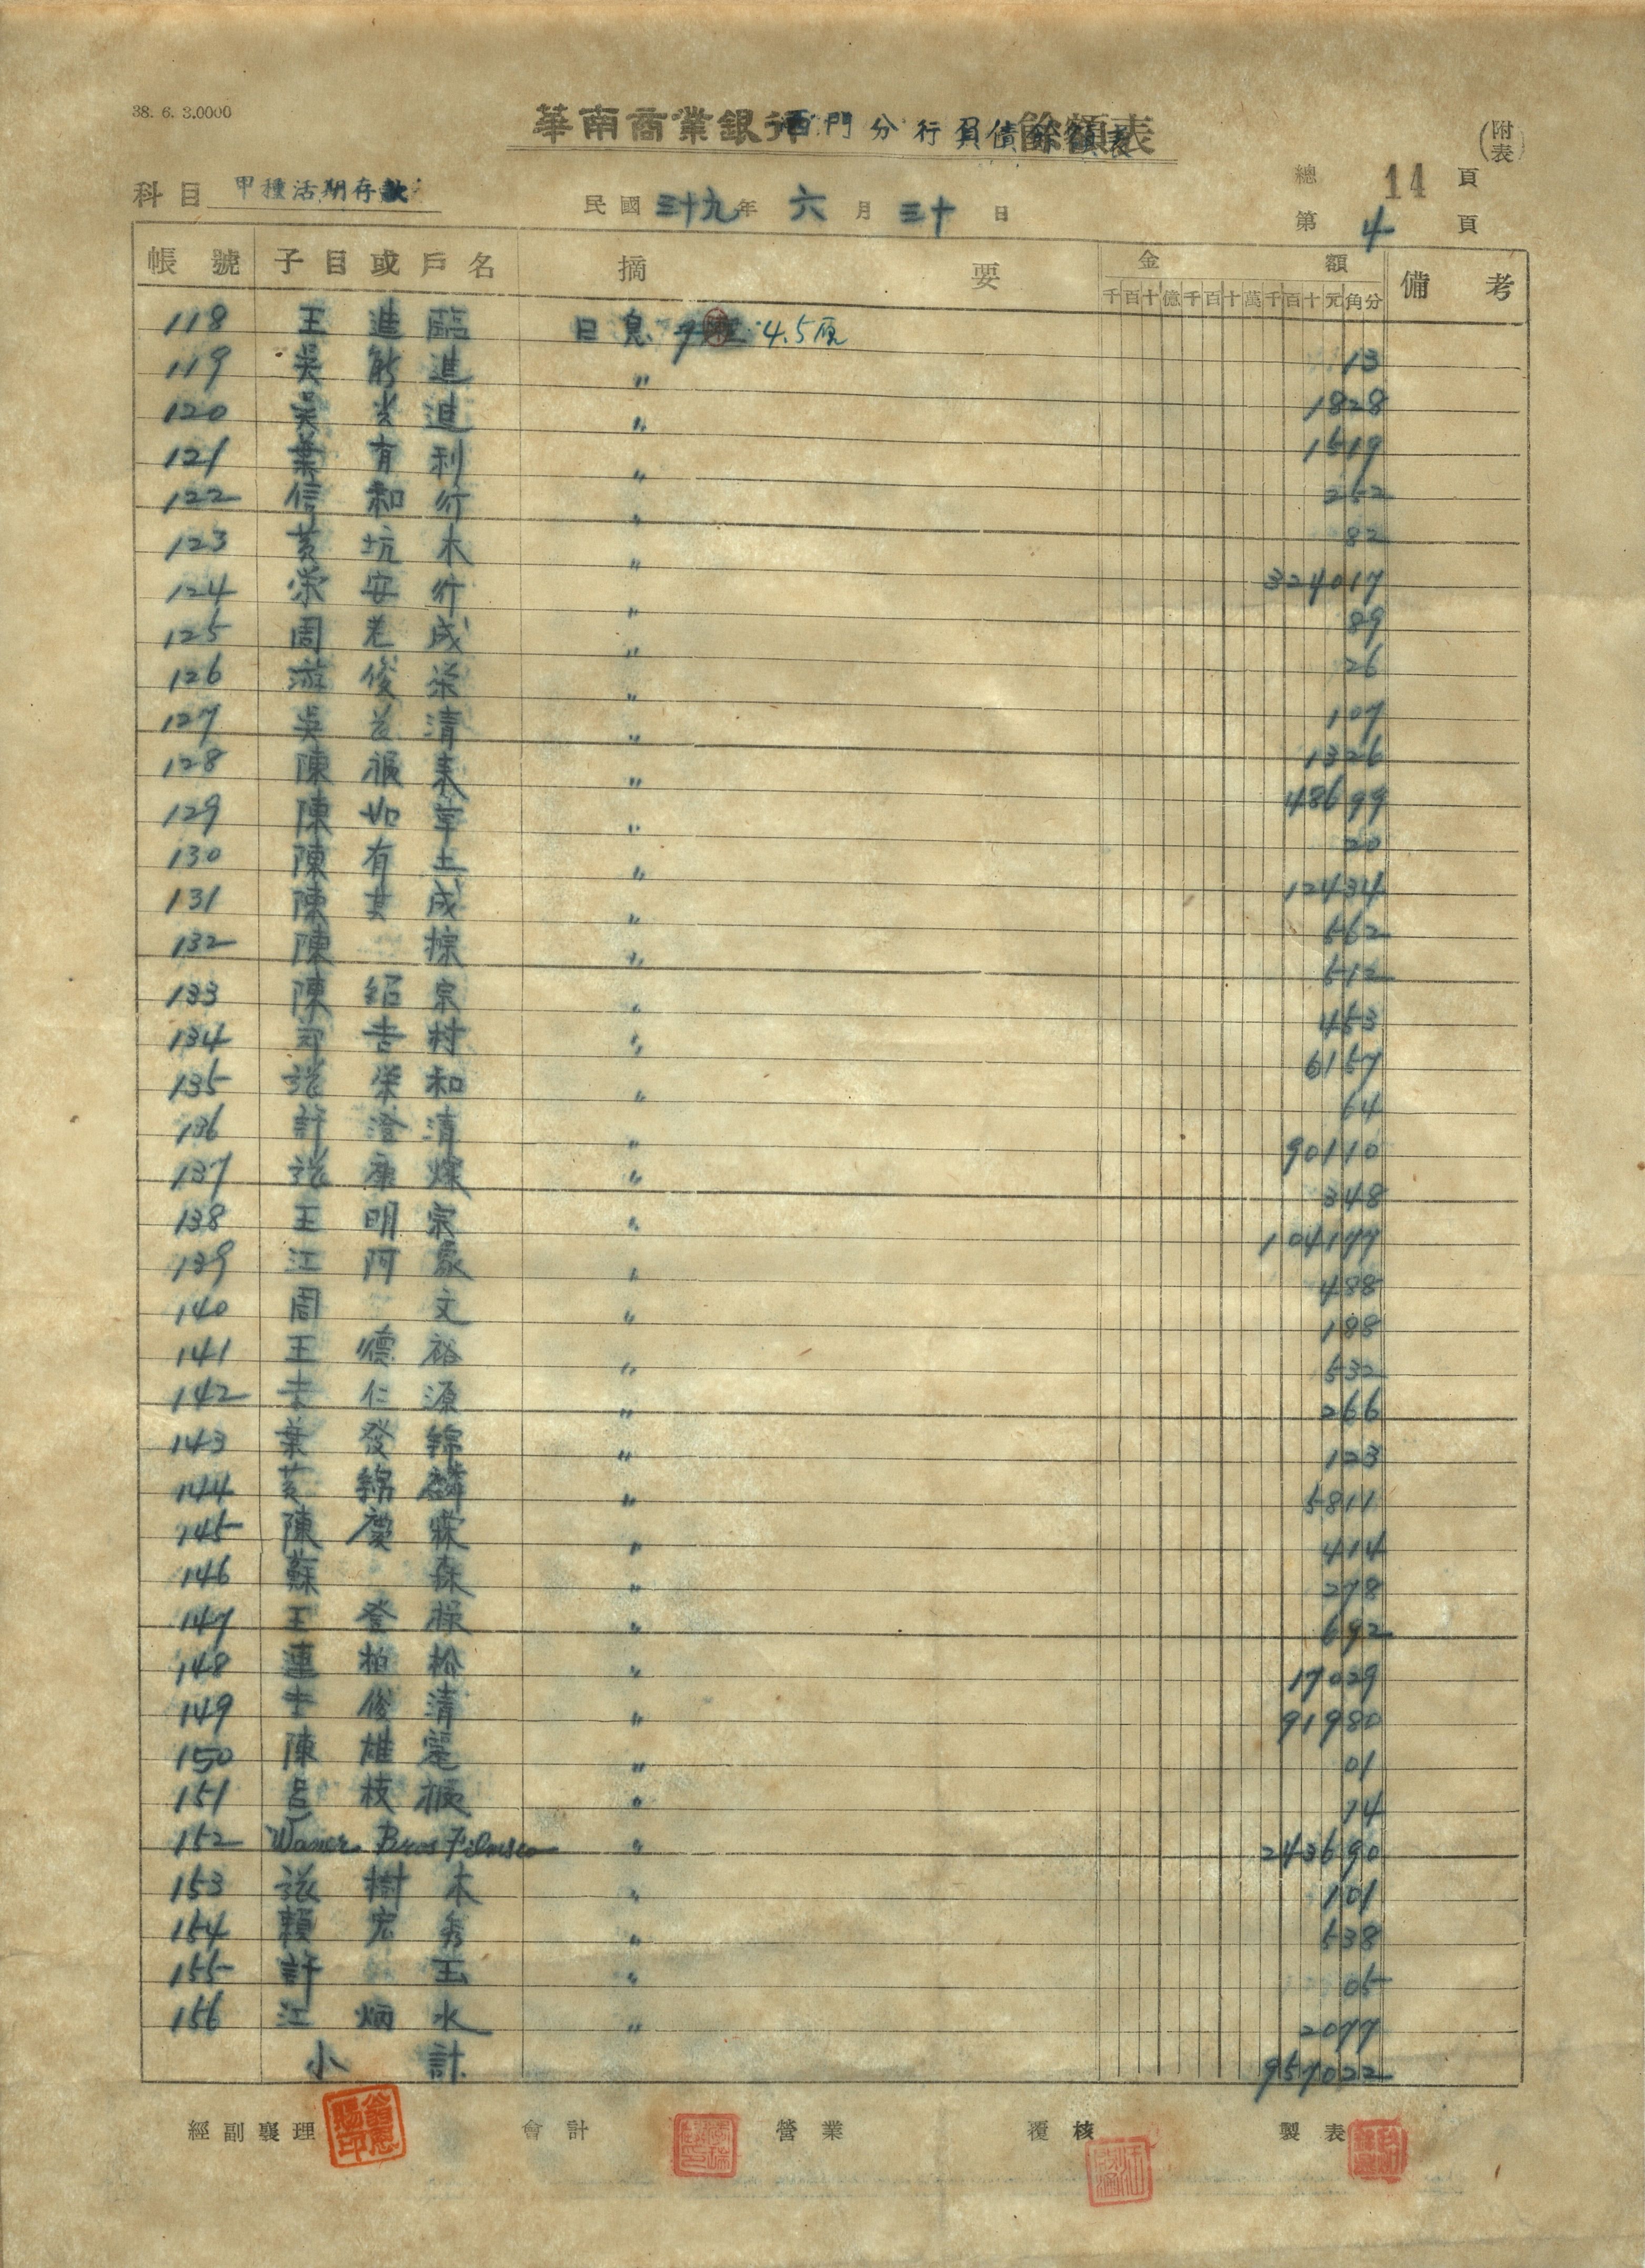 38. 6. 3.0000
華南商業銀行西門分行負債餘額表
(附表)
科目 甲種活期存款
民國 三十九 年 六 月 三十 日
總 14 頁
第 4 頁
帳號 子目或戶名 摘要 金額 備考
千百十億千百十萬千百十元角分
118 王進臨 日息 4.5厘 13
119 吳新進 〃 1828
120 吳 進 〃 1519
121 葉有利 〃 252
122 信和行 〃 82
123 黃坑木 〃 324017
124 榮安行 〃 89
125 周老成 〃 26
126 游俊榮 〃 107
127 吳 清 〃 1326
128 陳振 〃 48699
129 陳如草 〃 20
130 陳有土 〃 12434
131 陳其成 〃 562
132 陳 〃 512
133 陳紹宗 〃 453
134 吉村 〃 6157
135 張榮和 〃 64
136 許澄清 〃 90110
137 張康燦 〃 348
138 王明宗 〃 104177
139 江阿 〃 488
140 周文 〃 188
141 王德裕 〃 532
142 仁源 〃 266
143 葉發錦 〃 123
144 黃錦麟 〃 5811
145 陳慶 〃 414
146 蘇森 〃 278
147 王登祿 〃 692
148 連柏松 〃 17029
149 俊清 〃 91980
150 陳雄 〃 01
151 呂枝振 〃 14
152 Waner Bros Films co 〃 243690
153 張樹木 〃 101
154 賴宏秀 〃 538
155 許玉 〃 05
156 江炳水 〃 2077
小計 957022
經副襄理 會計 營業 覆核 製表